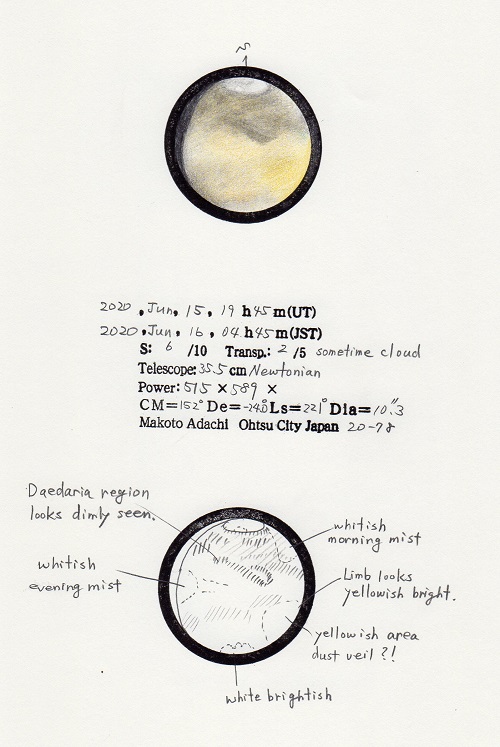 S
2020, Jun, 15, 19 h 45 m (UT)
2020, Jun, 16, 04 h 45 m (JST)
S: 6 /10 Transp.: 2 /5 sometime cloud
Telescope: 35.5 cm Newtonian
Power: 515 × 589 ×
CM=152° De=-24.0 Ls=221° Dia=10".3
Makoto Adachi Ohtsu City Japan 20-78
Daedaria region
looks dimly seen.
whitish
morning mist
whitish
evening mist
Limb looks
yellowish bright.
yellowish area
dust veil ?!
white brightish